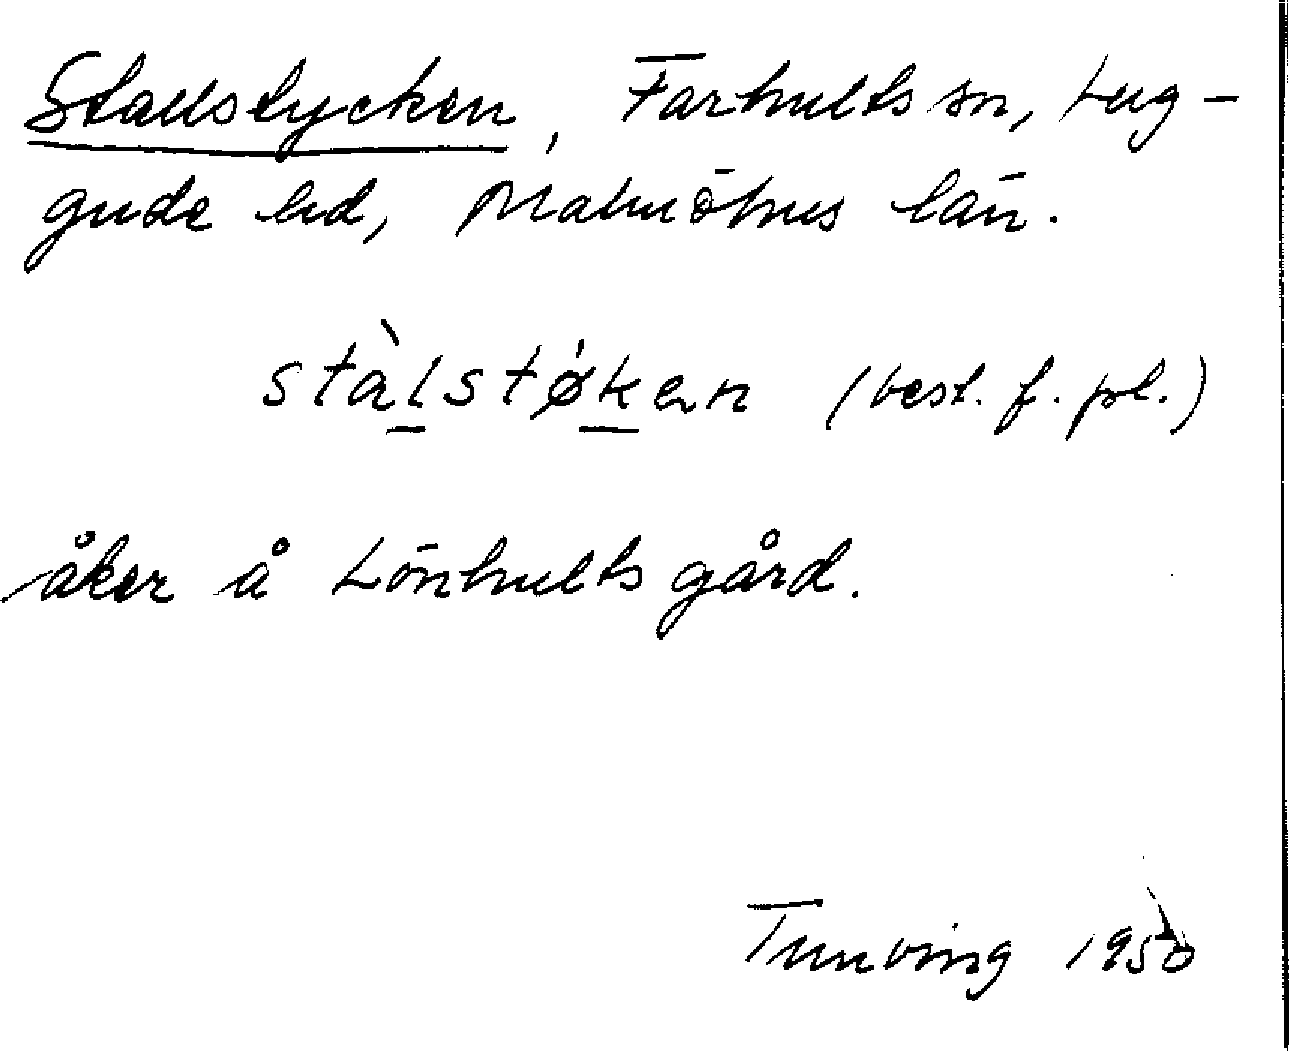 Stallstycken, Farhults sn, Lug-
gude hd, Malmöhus län.
stàl̲stø̀k̲en (best. f. pl.)
åker å Lönhults gård.
Tunving 1950